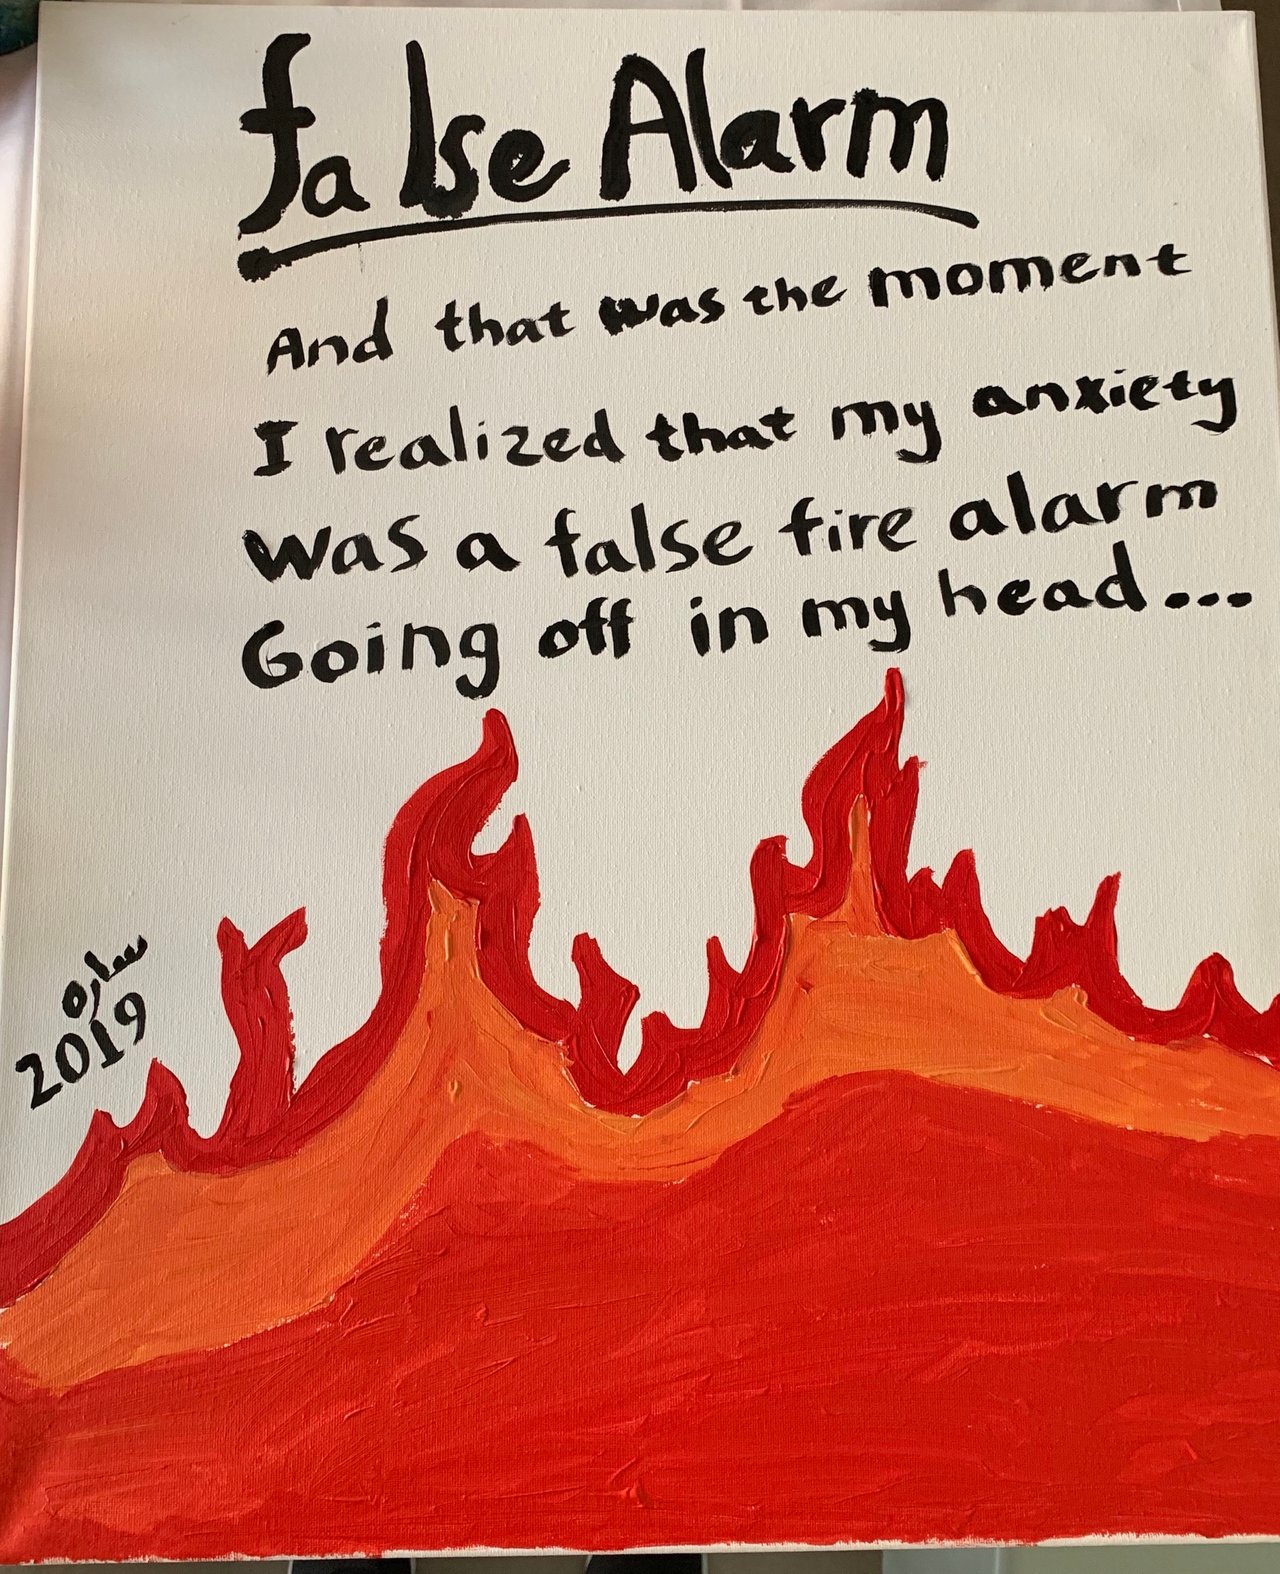 false Alarm
And that was the moment
I realized that my anxiety
was a false fire alarm
Going off in my head...
ساره
2019